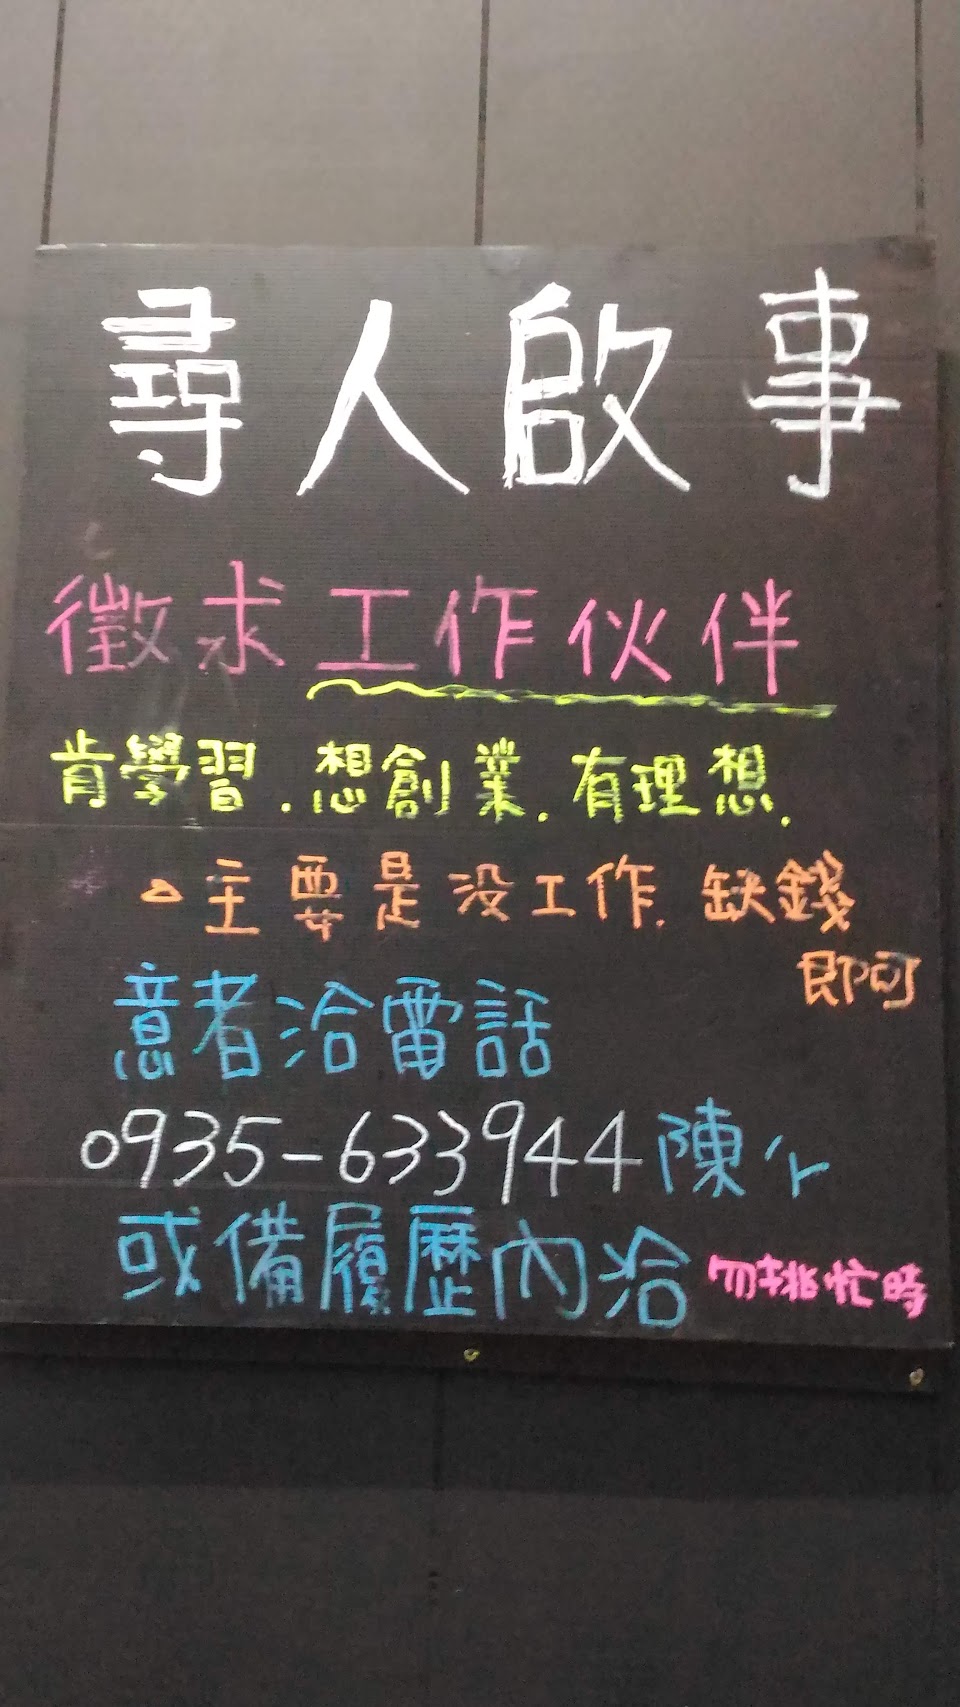 尋人啟事
徵求工作伙伴
肯學習.想創業.有理想.
△主要是沒工作.缺錢
即可
意者洽電話
0935-633944陳
或備履歷內洽 勿挑忙時